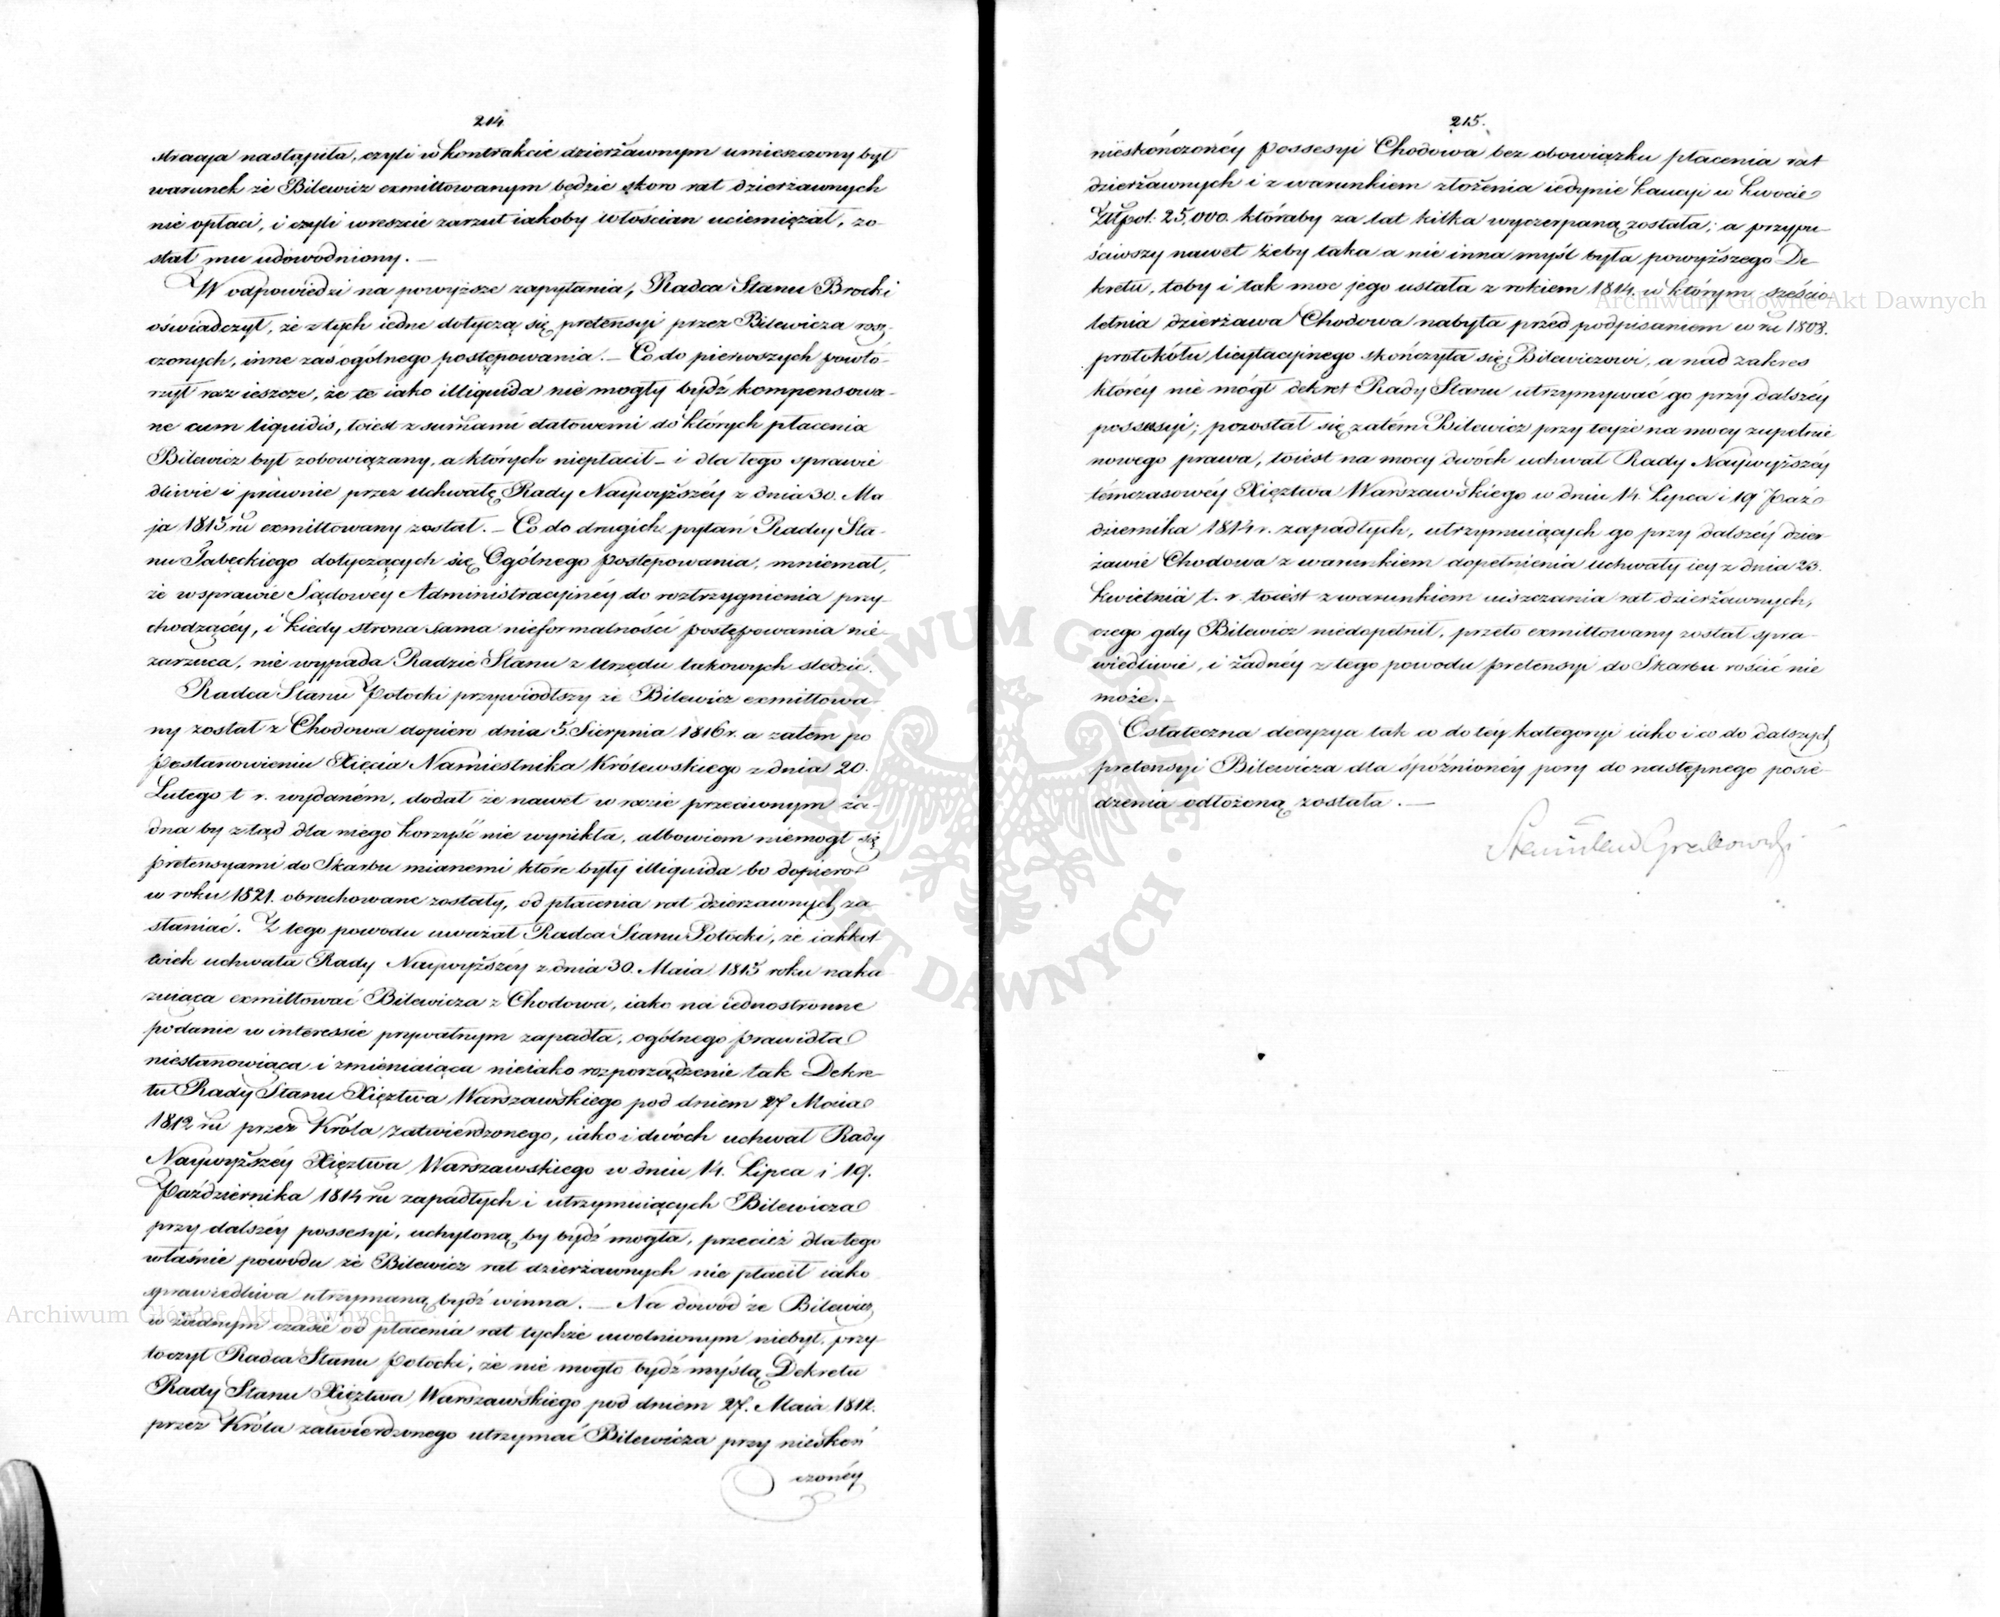 214
stracya nastąpiła, czyli w kontrakcie dzierżawnym umieszczony był
warunek że Bilewicz exmittowanym będzie skoro rat dzierżawnych
nie opłaci, i czyli wreszcie zarzut iakoby włościan uciemiężał, zo-
stał mu udowodniony. —
W odpowiedzi na powyższe zapytania, Radca Stanu Brocki
oświadczył, że z tych iedne dotyczą się pretensyi przez Bilewicza rosz-
czonych, inne zaś ogólnego postępowania. — Co do pierwszych powtó-
rzył raz ieszcze, że te iako illiquida nie mogły bydź kompensowa-
ne cum liquidis, toiest z summami ratowemi do których płacenia
Bilewicz był zobowiązany, a których niepłacił – i dla tego sprawie
dliwie i prawnie przez uchwałę Rady Naywyższéy z dnia 30. Ma
ja 1815 ru exmittowany został. — Co do drugich pytań Radcy Sta-
nu Tabęckiego dotyczących się Ogólnego postępowania, mniemał,
że w sprawie Sądowey Administracyinéy do roztrzygnienia przy-
chodzącéy, i kiedy strona sama nieformalności postępowania nie
zarzuca, nie wypada Radzie Stanu z Urzędu takowych sledzić.
Radca Stanu Potocki przywiodłszy że Bilewicz exmittowa-
ny został z Chodowa dopiero dnia 5. Sierpnia 1816 r. a zatem po
Postanowieniu Xięcia Namiestnika Królewskiego z dnia 20.
Lutego t. r. wydaném, dodał że nawet w razie przeciwnym ża-
dna by ztąd dla niego korzyść nie wynikła, albowiem niemogł się
pretensyami do Skarbu mianemi które były illiquida bo dopiero
w roku 1821. obrachowane zostały, od płacenia rat dzierzawnych za
staniać. Z tego powodu uważał Radca Stanu Potocki, że iakkol
wiek uchwała Rady Naywyższéy z dnia 30. Maia 1815 roku naka
zuiąca exmittować Bilewicza z Chodowa, iako na iednostronne
podanie w interessie prywatnym zapadła, ogólnego prawidła
niestanowiąca i zmieniaiąca nieiako rozporządzenie tak Dekre-
tu Rady Stanu Xięztwa Warszawskiego pod dniem 27 Maia
1812 ru przez Króla zatwierdzonego, iako i dwóch uchwał Rady
Naywyższéy Xięztwa Warszawskiego w dniu 14. Lipca i 19.
Października 1814 ru zapadłych i utrzymuiących Bilewicza
przy dalszéy possesyi, uchyloną by bydź mogła, przecież dla tego
właśnie powodu że Bilewicz rat dzierżawnych nie płacił iako
sprawiedliwa utrzymaną bydź winna. — Na dowód że Bilewicz
w żadnym czasie od płacenia rat tychże uwolnionym niebył, przy-
toczył Radca Stanu Potocki, że nie mogło bydź myślą Dekretu
Rady Stanu Xięztwa Warszawskiego pod dniem 27. Maia 1812.
przez Króla zatwierdzonego utrzymać Bilewicza przy nieskoń
czonéy
215.
nieskończonéy possesyi Chodowa bez obowiązku płacenia rat
dzierżawnych i z warunkiem złożenia iedynie kaucyi w kwocie
Złłpol: 25,000. któraby za lat kilka wyczerpaną została; a przypu-
ściwszy nawet żeby taka a nie inna myśl była powyższego De
kretu, toby i tak moc jego ustała z rokiem 1814. w którym sześcio
letnia dzierżawa Chodowa nabyta przed podpisaniem w ru 1808.
protokółu licytacyjnego skończyła się Bilewiczowi, a nad zakres
któréy nie mógł dekret Rady Stanu utrzymywać go przy dalszéy
possesyi; pozostał się zatém Bilewicz przy teyże na mocy zupełnie
nowego prawa, toiest na mocy dwóch uchwał Rady Naywyższéy
témczasowéy Xięztwa Warszawskiego w dniu 14. Lipca i 19 Paź
dziernika 1814 r. zapadłych, utrzymuiących go przy dalszéy dzier
żawie Chodowa z warunkiem dopełnienia uchwały iey z dnia 23.
Kwietnia t. r. toiest z warunkiem uiszczania rat dzierżawnych,
czego gdy Bilewicz niedopełnił, przeto exmittowany został spra-
wiedliwie, i żadnéy z tego powodu pretensyi do Skarbu rościć nie
może. —
Ostateczna decyzya tak co do téy kategoryi iako i co do dalszych
pretensyi Bilewicza dla śpóźnionéy pory do następnego posie-
dzenia odłożoną została. —
Stanisław Grabowski
Archiwum Główne Akt Dawnych
Archiwum Główne Akt Dawnych
ARCHIWUM GŁÓWNE AKT DAWNYCH